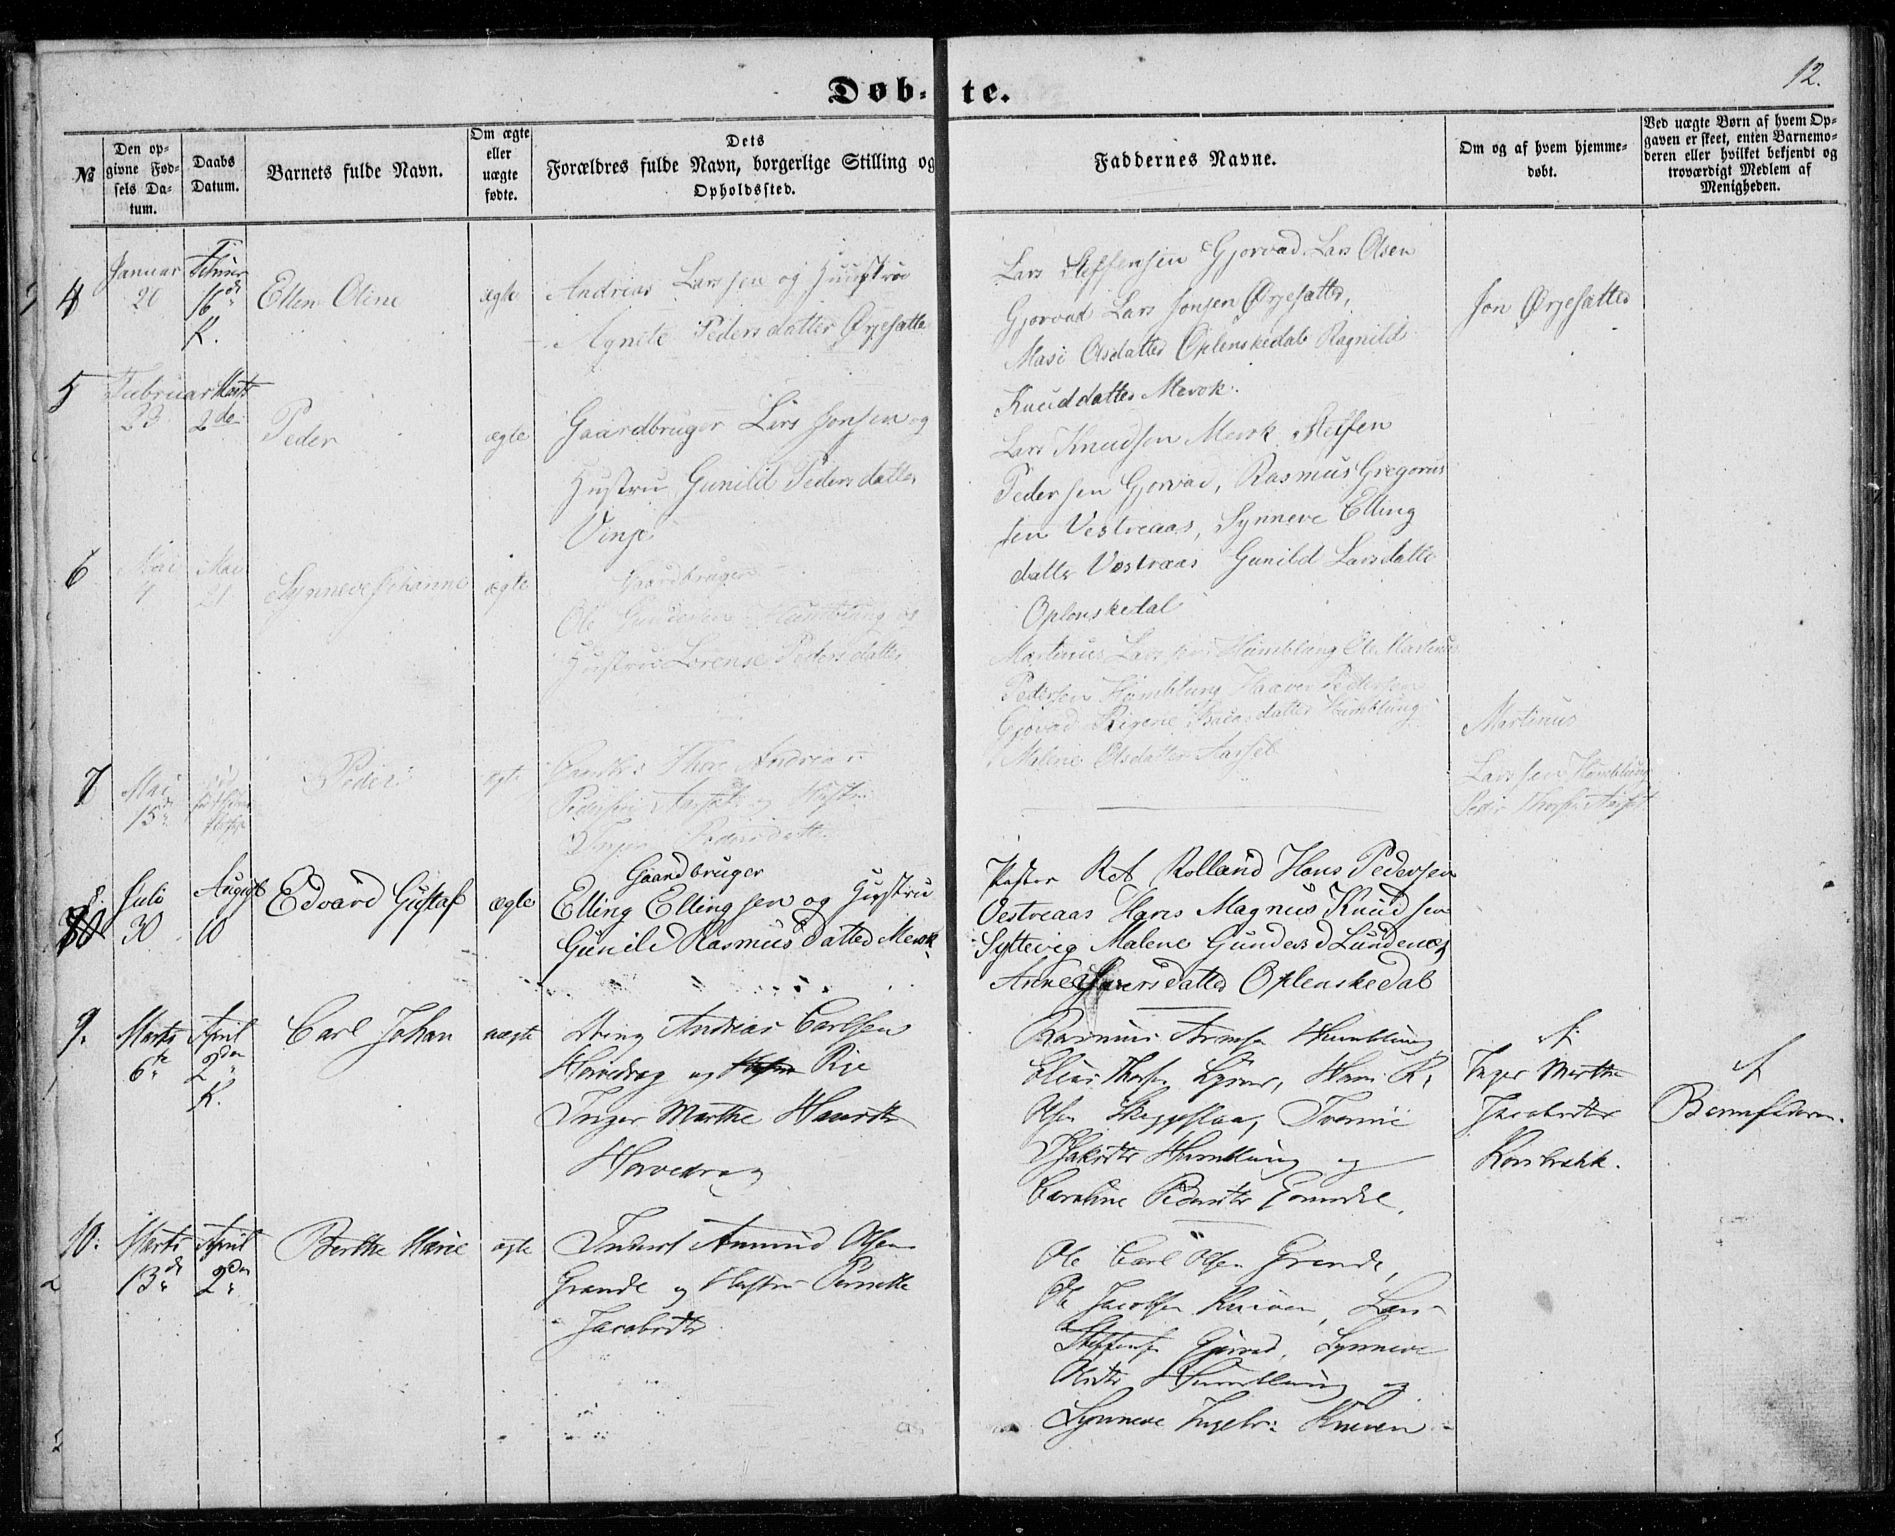 12.
Døb-te.
№
Den op-
givne Fød-
sels Da-
tum.
Daabs
Datum.
Barnets fulde Navn.
Om ægte
eller
uægte
fødte.
Dets
Forældres fulde Navn, borgerlige Stilling og
Opholdssted.
Faddernes Navne.
Om og af hvem hjemme-
døbt.
Ved uægte Børn af hvem Op-
gaven er skeet, enten Barnemo-
deren eller hvilket bekjendt og
troværdigt Medlem af
Menigheden.
4
Januar
20
16de
K.
Ellen Oline
ægte
Andreas Larssen og Huustrue
Agnete Pedersdatter Ørjesætte
Lars Steffensen Gjørvad Lars Olsen
Gjørvad Lars Jonsen Ørjesætter,
Masi Olsdatter Oplenskedal Ragnild
Knuddatter Merok.
Jon Ørjesætter
5
Februar
23
Marts
2de
Peder
ægte
Gaardbruger Lars Jonsen og
Hustru Gunild Pedersdatter
Vinje
Lars Knudsen Merok Steffen
Pedersen Gjørvad, Rasmus Gregorius
sen Vestreaas, Synneve Elling
datter Vestraas Gunild Larsdatter
Oplenskedal
6
Mai
4
Mai
21
Synneve Johanne
ægte
Gaardbruger
Ole Gundersen Humblung og
Hustrue Lorense Pedersdatter
Martinus Larssen Humblung Ole Martinus
Pedersen Humblung Haaver Pedersen
Gjørvad Knudsdatter Humblung
Malene Olsdatter Aarset
Martinus
Larssen Humblung
7
Mai
15de
Peder
ægte
Thore Andreas
Pedersen Aarset og Hustru
Inger Pedersdatter
Peder Thorsen Aarset
8.
Juli
30
August
10
Edvard Gustaf
ægte
Gaardbruger
Elling Ellingsen og Hustru
Gunild Rasmusdatter Merok
Pastor Rolland Hans Pedersen
Vestreaas Hans Magnus Knudsen
Syltevig Malene Gunders d Lundenes
Anne Iversdatter Oplenskedal
9.
Marts
6te
April
2den
K.
Carl Johan
uægte
Andreas Carlsen
Horvedrag og Pige
Inger Marthe Hansdtr
Horvedrag
Rasmus Arnesen Humblung
Elias Thorsen Hans R.
Olsen Skeggstaa,
Humblung og
Caroline Pedersdtr Grande.
Af
Inger Marthe
Jacobsdtr
Korsbrekk.
Af
Barnefaderen.
10.
Marts
13de
April
2den
Berthe Marie
ægte
Inderst Amund Olsen
Grande og Hustru Pernille
Jacobsdtr
Ole Carl Olsen Grande,
Ole Jacobsen Kniven, Lars
Steffensen Gjørvad, Synneve
Olsdtr Humblung og
Synneve Ingebr: Kniven